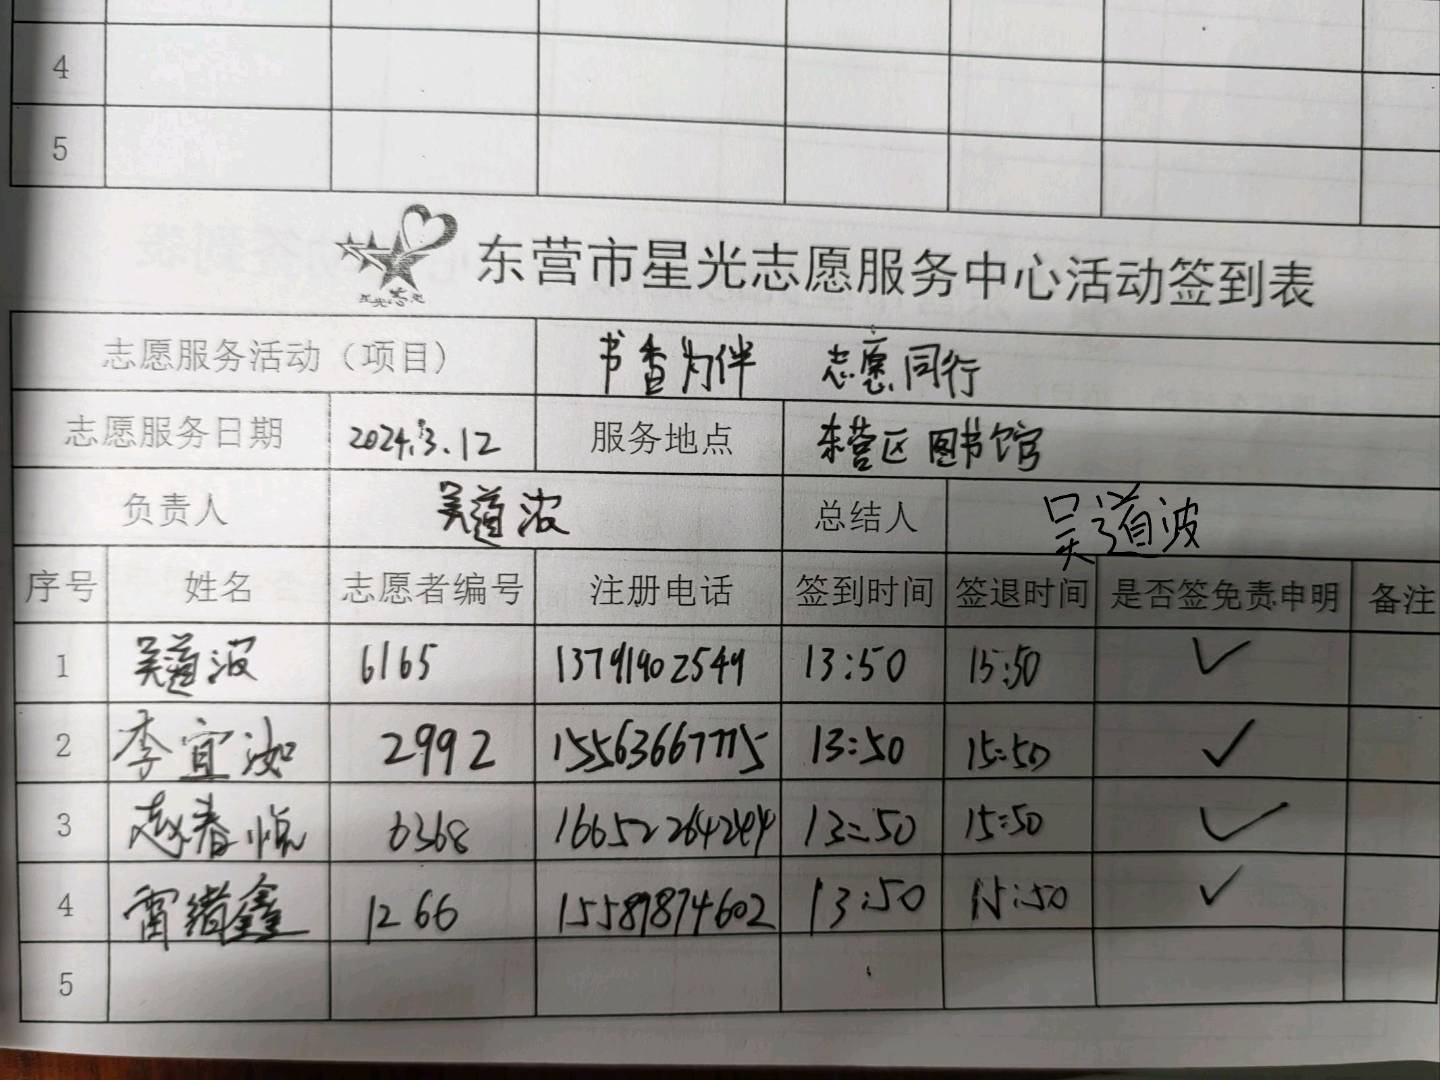 4
5
星光志愿
东营市星光志愿服务中心活动签到表
志愿服务活动（项目） 书香为伴 志愿同行
志愿服务日期 2024.3.12 服务地点 东营区图书馆
负责人 吴道波 总结人 吴道波
序号 姓名 志愿者编号 注册电话 签到时间 签退时间 是否签免责申明 备注
1 吴道波 6165 13791902549 13:50 15:50 ✓
2 李宜洳 2992 15563667775 13:50 15:50 ✓
3 赵春悦 6368 16652264244 13:50 15:50 ✓
4 雷绪鑫 1266 15589874602 13:50 15:50 ✓
5